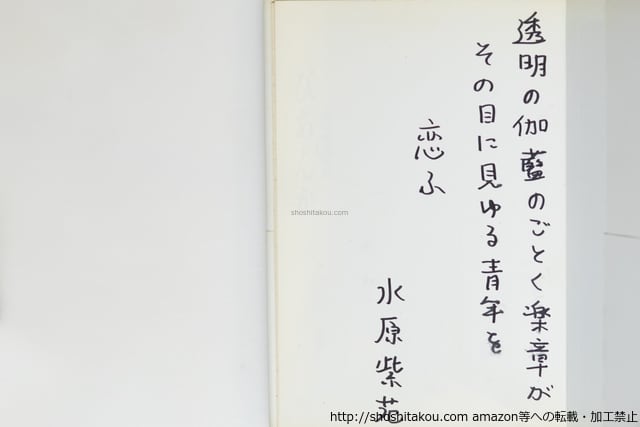 透明の伽藍のごとく楽章が
その目に見ゆる青年を
恋ふ
水原紫苑
shoshitakou.com
http://shoshitakou.com amazon等への転載・加工禁止